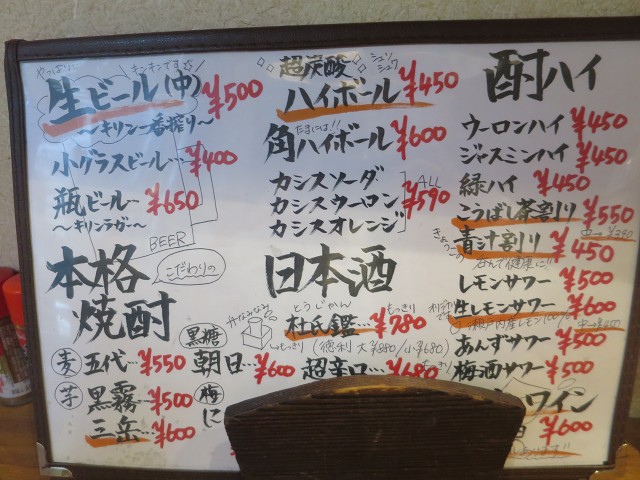 やっぱりに キンキンですよ
生ビール(中) ¥500
〜キリン一番搾り〜
小グラスビール… ¥400
瓶ビール… ¥650
〜キリンラガー〜
BEER
本格 こだわりの
焼酎
麦 五代… ¥550
芋 黒霧… ¥500
三岳… ¥600
黒糖
朝日… ¥600
梅 に
超炭酸 シュワ シュワ
ハイボール ¥450
たまには!!
角ハイボール ¥600
カシスソーダ
カシスウーロン ALL ¥590
カシスオレンジ
日本酒
とうじかん もっきり
杜氏鑑… ¥780
もっきり (徳利 大¥880/小¥680)
超辛口… ¥680
酎ハイ
ウーロンハイ ¥450
ジャスミンハイ ¥450
緑ハイ ¥450
こうばし茶割り ¥550
青汁割り ¥450
呑んで健康に!!
レモンサワー ¥500
生レモンサワー ¥600
瀬戸内産レモン100%
あんずサワー ¥500
梅酒サワー ¥500
ワイン
¥600
あります!!